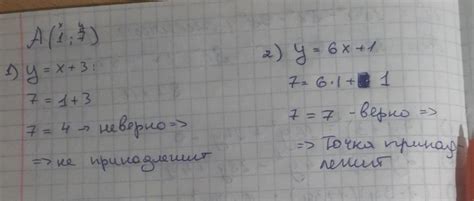 x y
A(1;7)
1) y = x+3:
7 = 1+3
7 = 4 → неверно =>
=> не принадлежит
2) y = 6x+1
7 = 6·1+ 1
7 = 7 - верно =>
=> Точка принад-
лежит